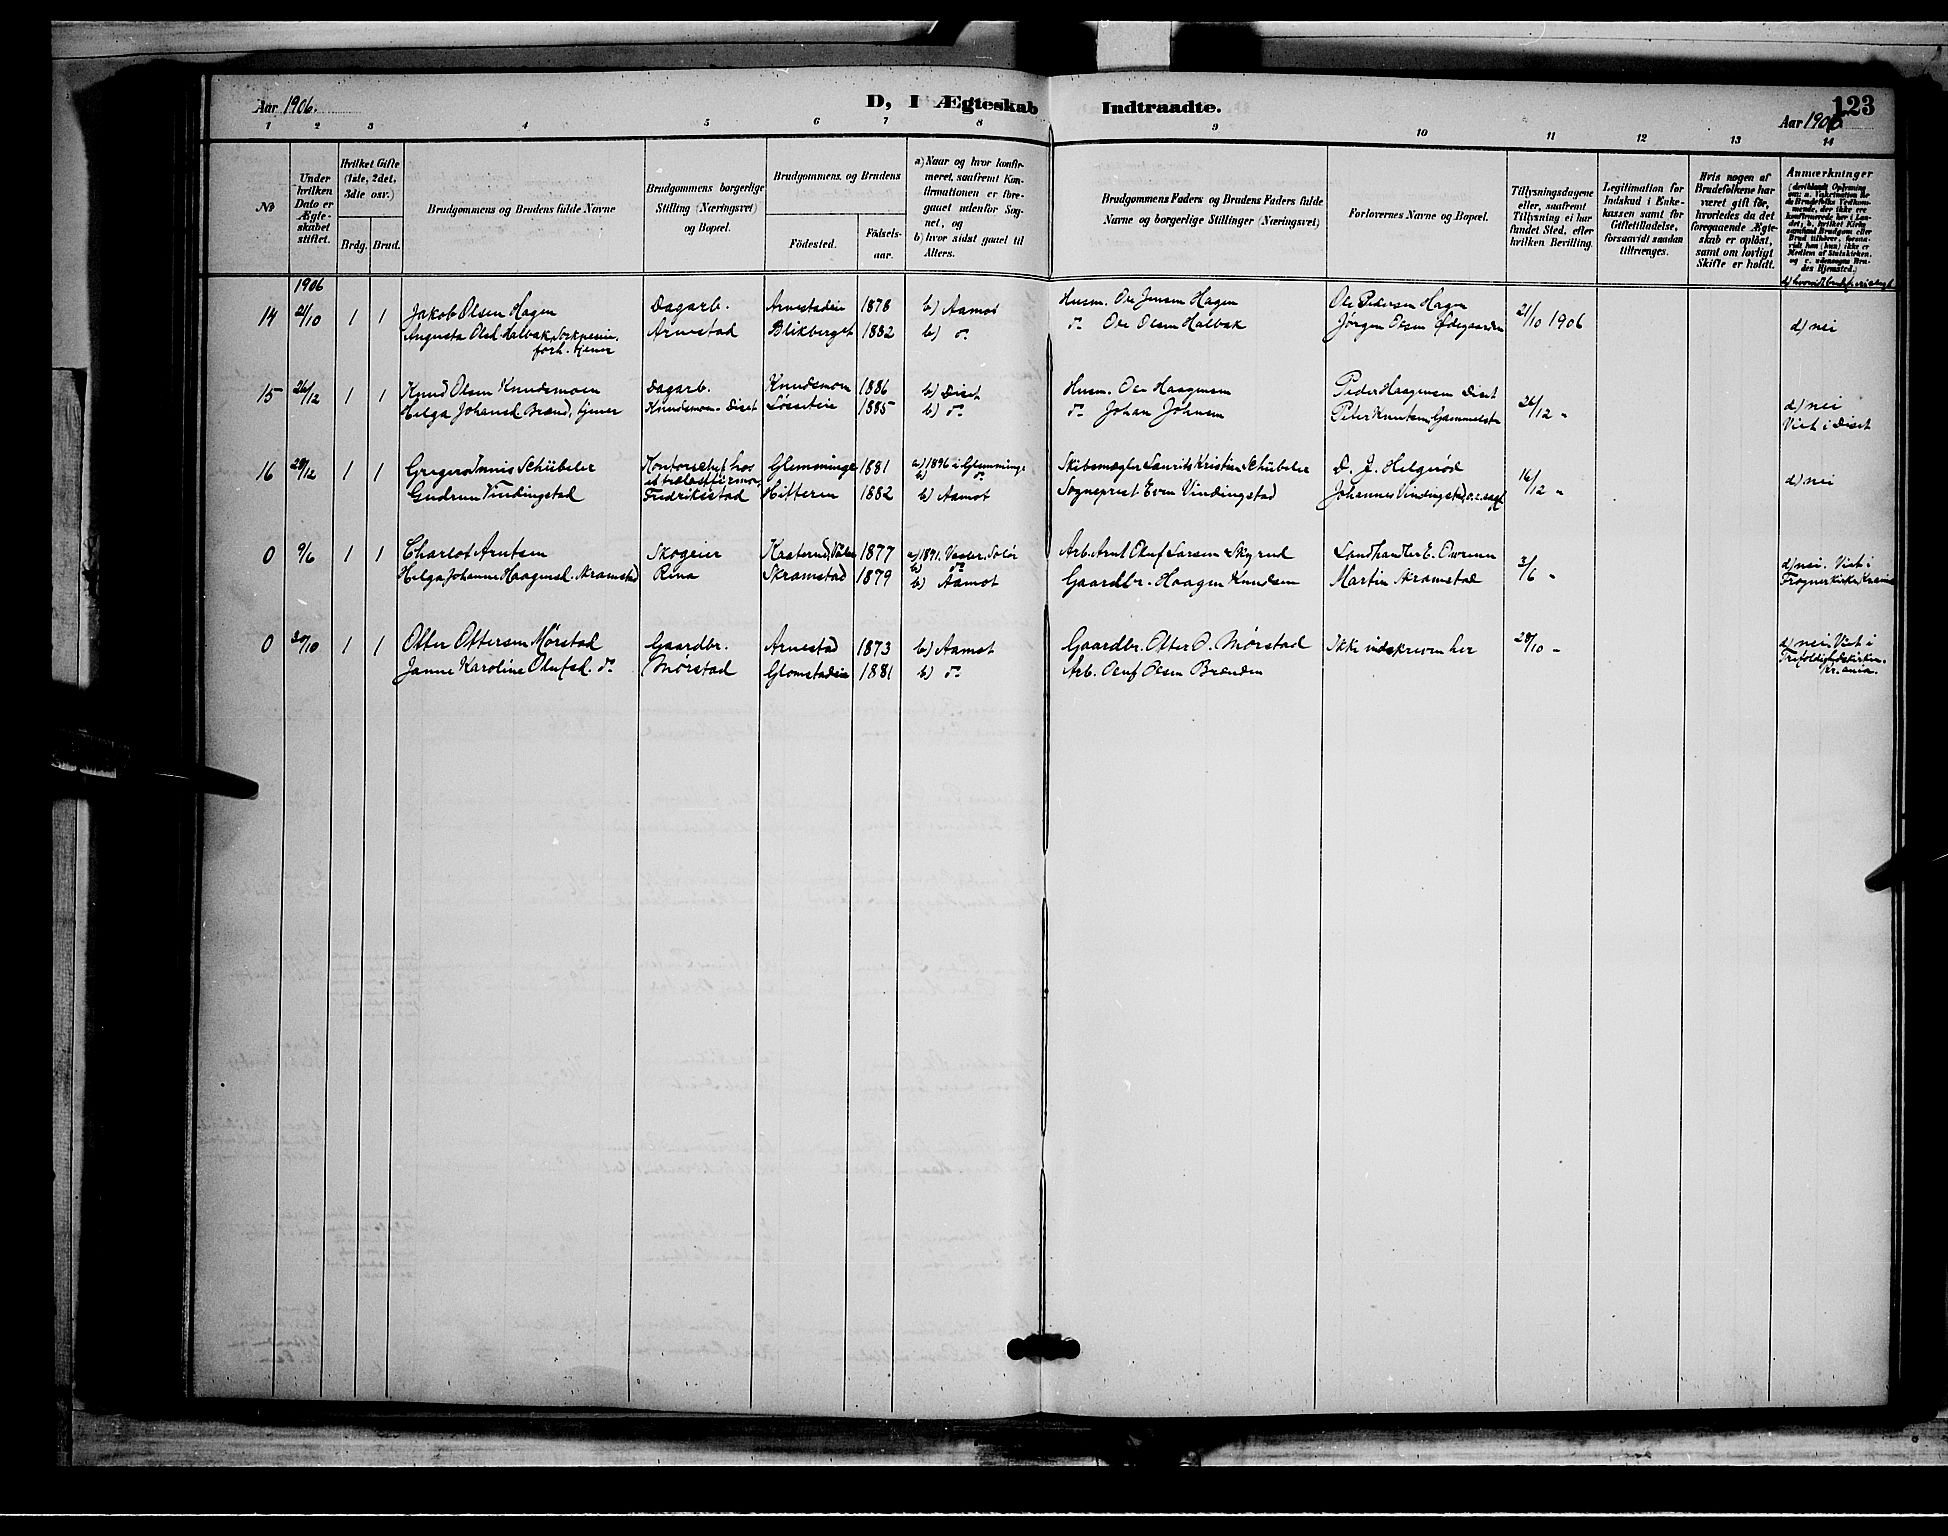 Aar 1906.
D, I Ægteskab Indtraadte.
123
Aar 1906
1 2 3 4 5 6 7 8 9 10 11 12 13 14
No
Under hvilken Dato er Ægteskabet stiftet.
Hvilket Gifte (1ste, 2det, 3die osv.)
Brdg. Brud.
Brudgommens og Brudens fulde Navne
Brudgommens borgerlige Stilling (Næringsvei) og Bopæl.
Brudgommens og Brudens
Födested.
Födselsaar.
a) Naar og hvor konfirmeret, saafremt Konfirmationen er foregaaet udenfor Sognet, og
b) hvor sidst gaaet til Alters.
Brudgommens Faders og Brudens Faders fulde Navne og borgerlige Stillinger (Næringsvei)
Forlovernes Navne og Bopæl.
Tillysningsdagene eller, saafremt Tillysning ei har fundet Sted, efter hvilken Bevilling.
Legitimation for Indskud i Enkekassen samt for Giftetilladelse, forsaavidt saadan tiltrænges.
Hvis nogen af Brudefolkene har været gift för, hvorledes da det foregaaende Ægteskab er oplöst, samt om lovligt Skifte er holdt.
Anmærkninger
1906
14 21/10 1 1 Jakob Olsen Hagen Dagarb. Arnestadeie 1878 b) Aamot Husm. Ole Jensen Hagen Ole Pedersen Hagen 21/10 1906
Augusta Olsd. Halbak, Arnestad Blikberget 1882 b) do do Ole Olsen Halbak Jørgen Olsen Ødegaarden d) nei
forh. tjener
15 26/12 1 1 Knud Olsen Knudsmoen Dagarb. Knudsmoen 1886 b) Diset Husm. Ole Haagensen Peder Haagensen Diset 26/12 "
Helga Johansd. Brænd, tjener Knudsmoen Diset 1885 b) do do Johan Johnsen Peter Knutsen, d) nei
Viet i Diset
16 28/12 1 1 Gregers Schübeler Kontorchef hos Glemminge 1881 a) 1896 i Glemminge Skibsmægler Laurits Kristian Schübeler D. J. Helgerød 16/12 "
et trælastfirma, b) do
Gudrun Vindingstad Fredrikstad Hitteren 1882 b) Aamot Sogneprest Even Vindingstad Johannes Vindingstad, d) nei
0 9/6 1 1 Charlot Arntsen Skogeier 1877 a) 1891. Vaaler. Solør Arb. Arnt Oluf Larsen Skyrud Landhandler E. 3/6 "
b) do
Helga Johanne Haagensd. Skramstad Rena Skramstad 1879 b) Aamot Gaardbr. Haagen Knudsen Martin Skramstad d) nei. Viet i
Frognerkirke, Krania
0 30/10 1 1 Otter Ottersen Mørstad Gaardbr. Arnestad 1873 b) Aamot Gaardbr. Otter O. Mørstad Ikke indskreven her 28/10 " d) nei. Viet i
Janne Karoline Olufsd. do Mørstad Glomstadeie 1881 b) do Arb. Oluf Olsen Brænden Trefoldighedskirken Kr.ania.